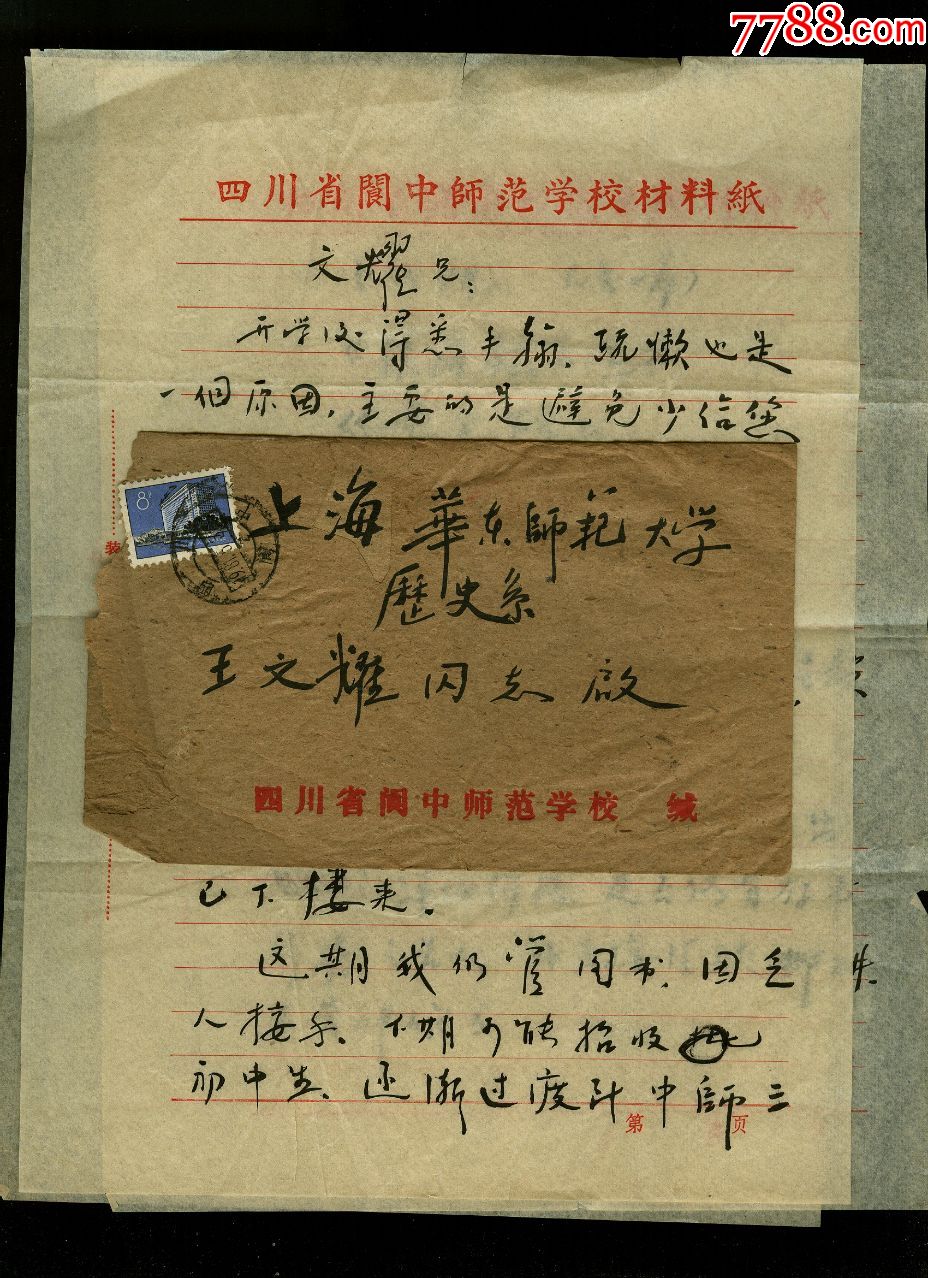 7788.com
四川省閬中師范学校材料紙
文耀兄：
开学后得悉手翰、疏懒也是
一個原因，主要的是避免少信您
8
上海華东師範大学
歷史系
王文耀同志啟
四川省阆中师范学校 缄
装
已下楼来。
这期我仍管图书，因乏
人接手。下期可能招收
初中生、逐渐过度到中師三
第 页